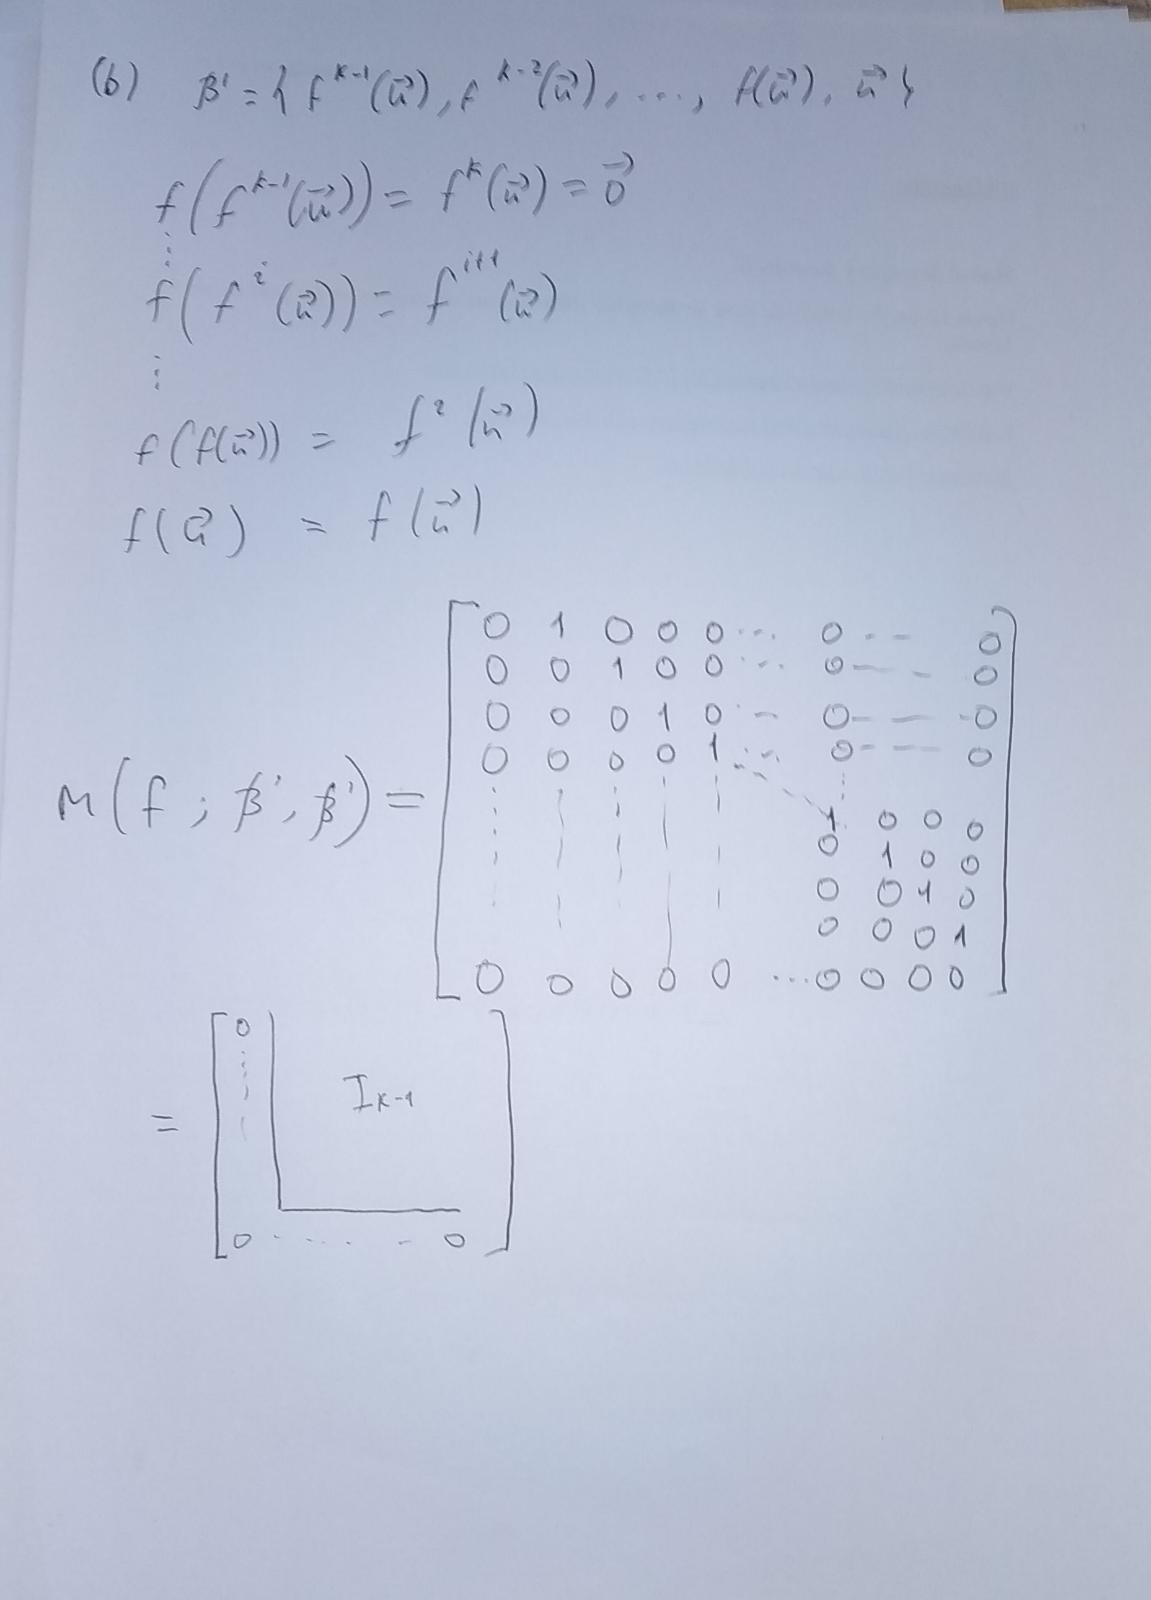 (b) β' = { f^{k-1}(u⃗), f^{k-2}(u⃗), ..., f(u⃗), u⃗ }
f(f^{k-1}(u⃗)) = f^k(u⃗) = 0⃗
⋮
f(f^i(u⃗)) = f^{i+1}(u⃗)
⋮
f(f(u⃗)) = f^2(u⃗)
f(u⃗) = f(u⃗)
0 1 0 0 0 ... 0 -- 0
0 0 1 0 0 ... 0 -- 0
0 0 0 1 0 -- 0 -- 0
0 0 0 0 1 ... 0 -- 0
M(f; β', β') =
1 0 0 0
0 1 0 0
0 0 1 0
0 0 0 1
0 0 0 0 0 ... 0 0 0 0
0
= I_{k-1}
0 ... 0